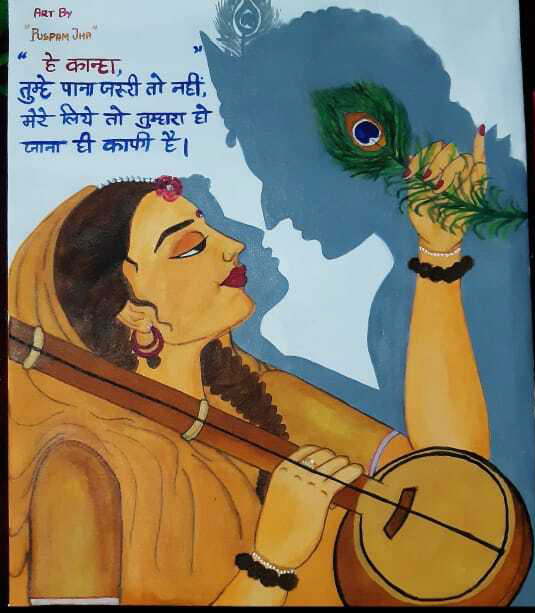 ART BY
"PUSPAM JHA"
" हे कान्हा, "
तुम्हे पाना जरूरी तो नहीं,
मेरे लिये तो तुम्हारा हो
जाना ही काफी है।